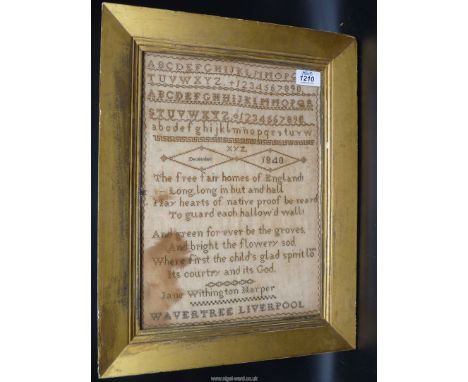 1210
ABCDEFGHIJKLMNOPQRS
TUVWXYZ 1234567890
ABCDEFGHIJKLMNOPQR
STUVWXYZ 1234567890
abcdefghijklmnopqrstuvw
XYZ
December 1840
The free fair homes of England
Long, long in hut and hall
May hearts of native proof be reard
To guard each hallow'd wall
And green for ever be the groves,
And bright the flowery sod
Where first the child's glad spirit
Its country and its God.
Jane Withington Harper
WAVERTREE LIVERPOOL